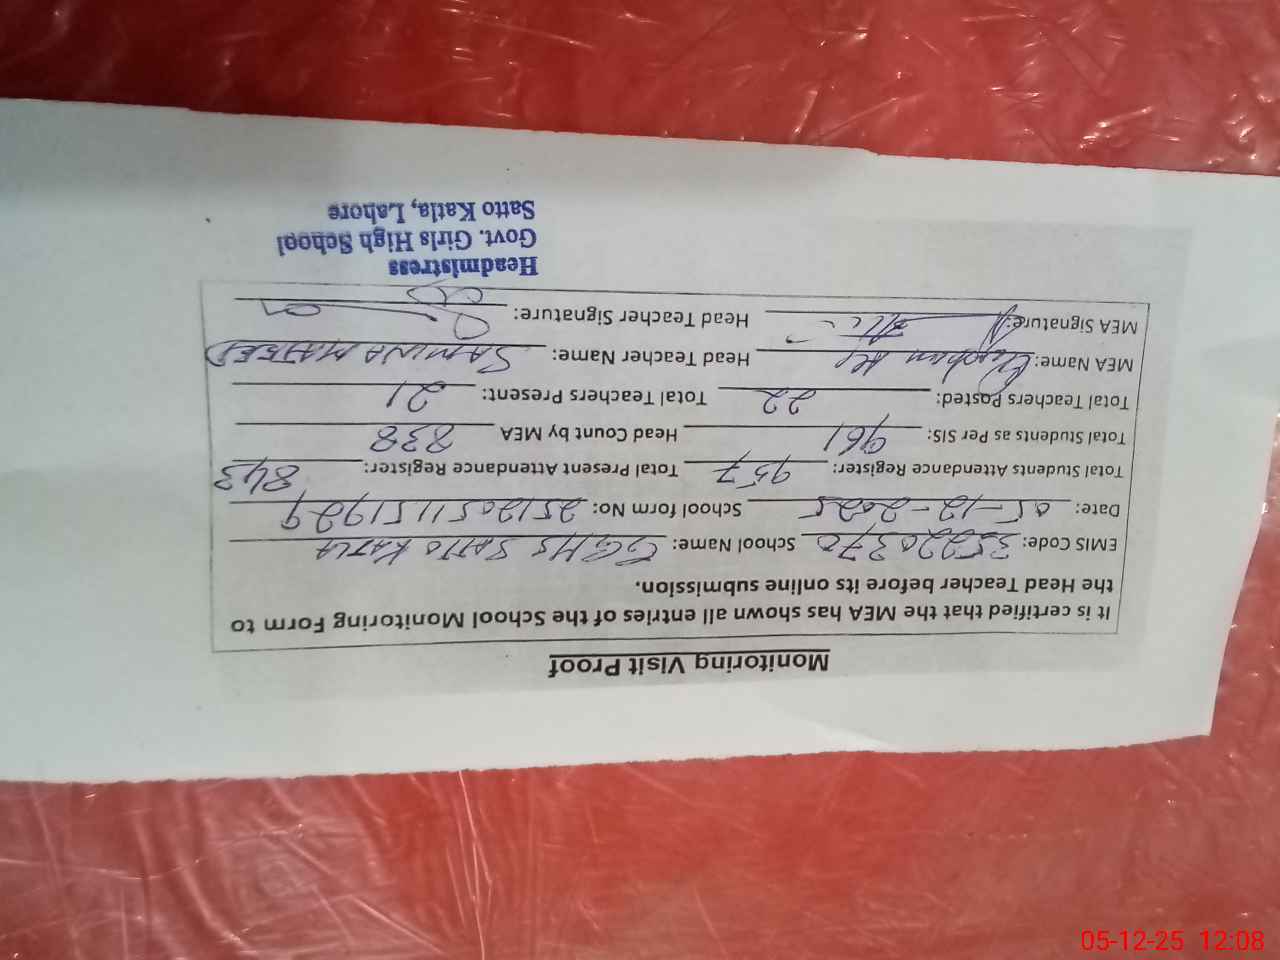 Monitoring Visit Proof
It is certified that the MEA has shown all entries of the School Monitoring Form to
the Head Teacher before its online submission.
EMIS Code: 35220370 School Name: GGHS SATTO KATLA
Date: 05-12-2025 School form No: 25120511519729
Total Students Attendance Register: 957 Total Present Attendance Register: 843
Total Students as Per SIS: 961 Head Count by MEA 838
Total Teachers Posted: 22 Total Teachers Present: 21
MEA Name: Head Teacher Name: SAMINA MAJEED
MEA Signature: Head Teacher Signature:
Headmistress
Govt. Girls High School
Satto Katla, Lahore
05-12-25 12:08